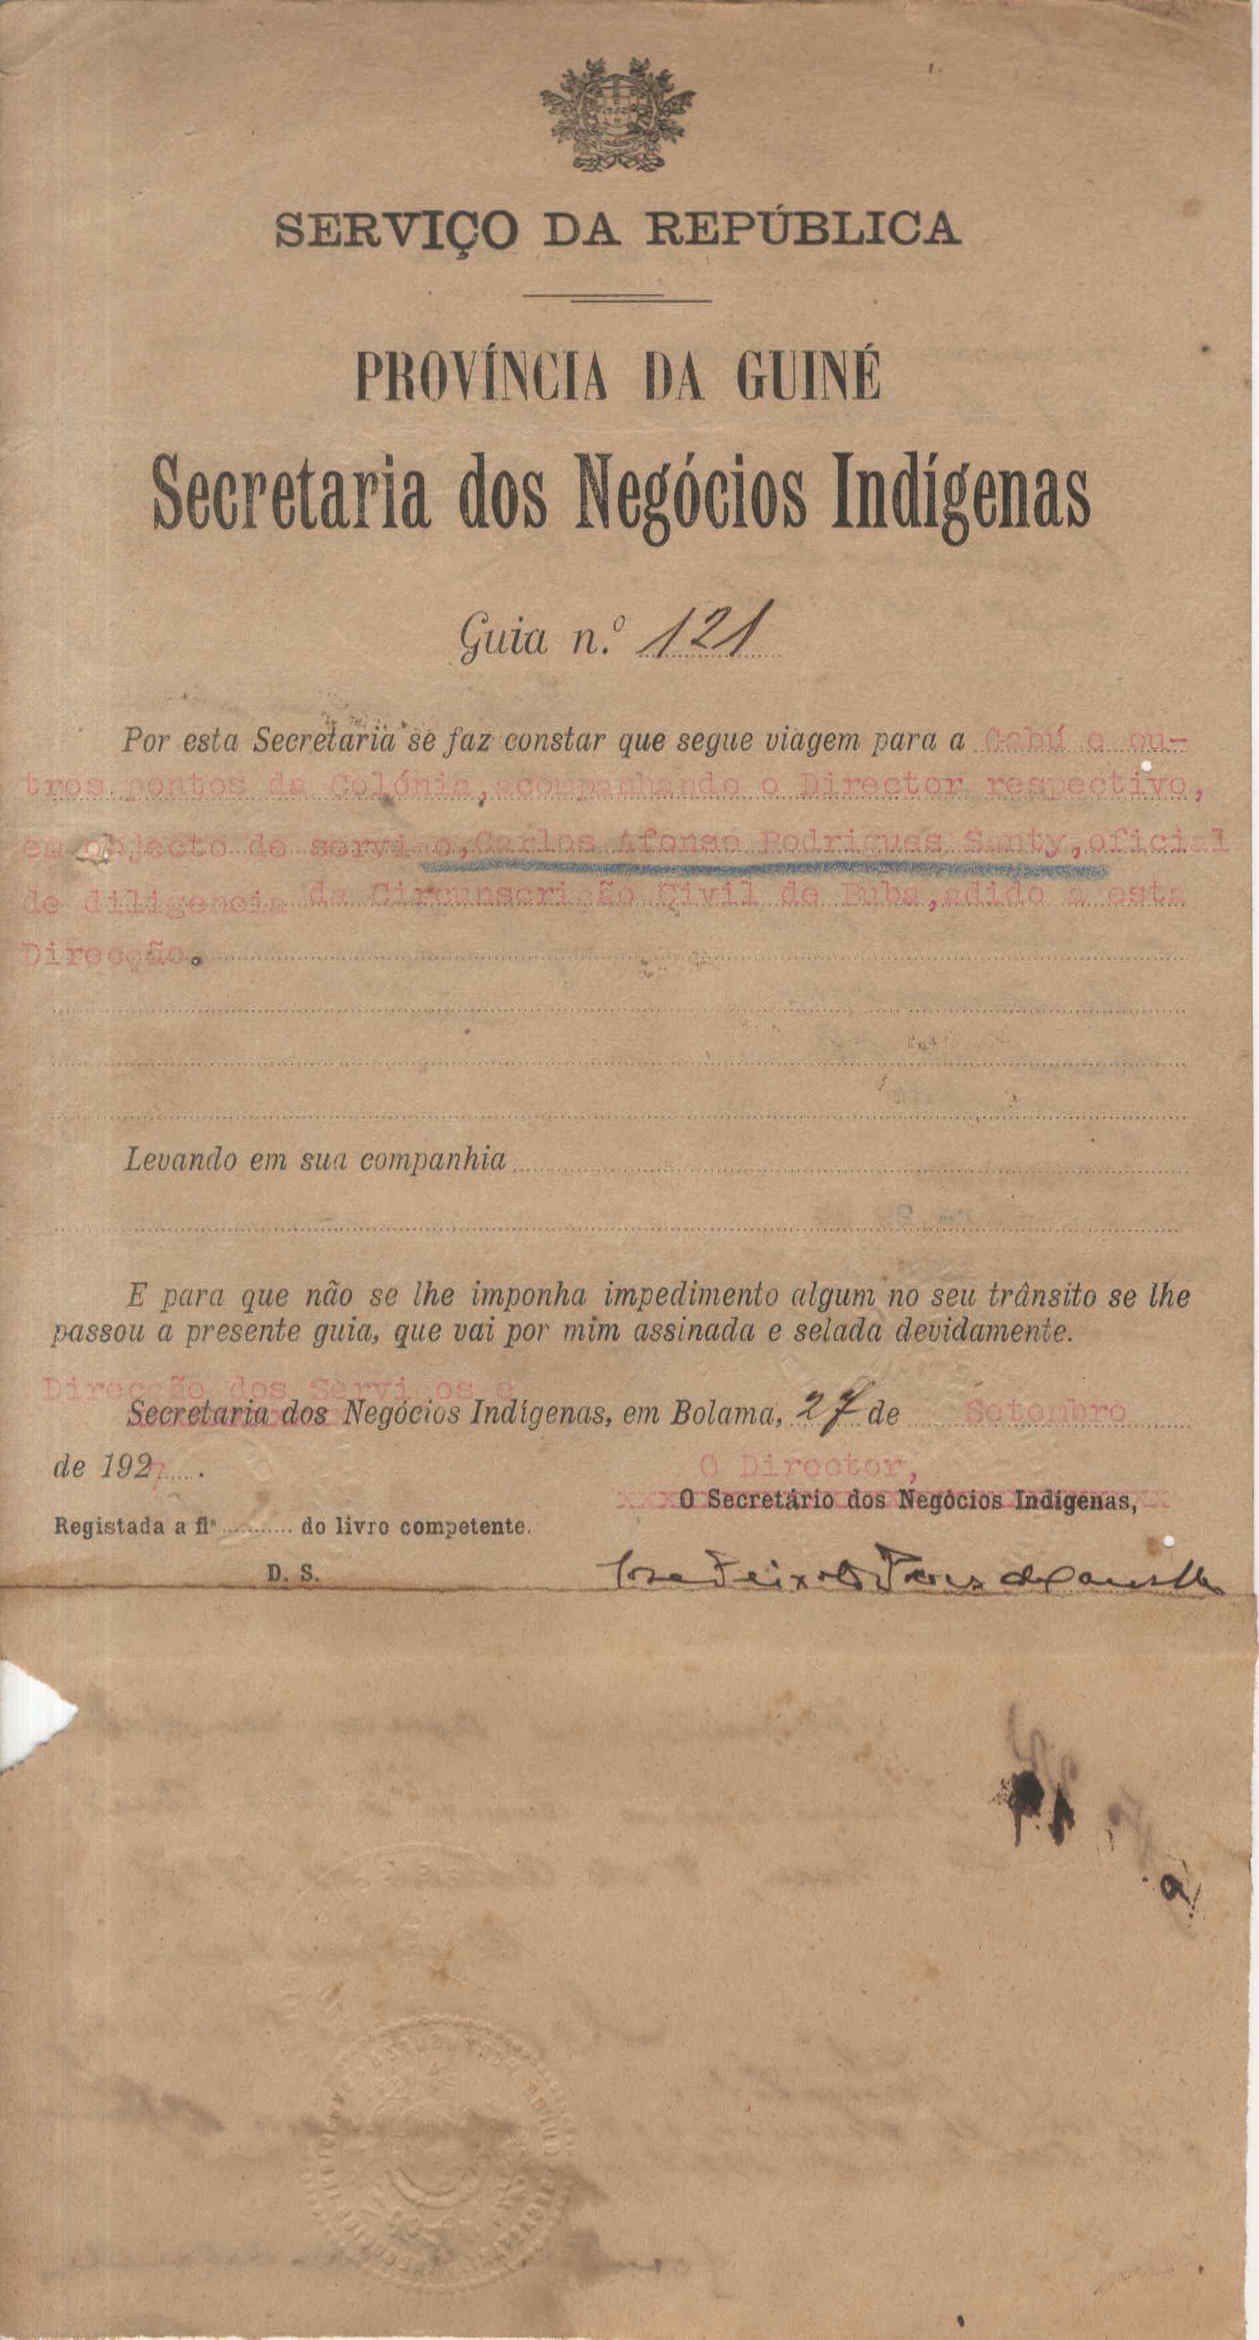 SERVIÇO DA REPÚBLICA
PROVÍNCIA DA GUINÉ
Secretaria dos Negócios Indígenas
Guia n.º 121
Por esta Secretaria se faz constar que segue viagem para a Gabú e ou-
tros pontos da Colónia, acompanhando o Director respectivo,
em objecto de serviço, Carlos Afonso Rodrigues Santy, oficial
de diligencia da Circunscrição Civil de Buba, adido a esta
Direcção.
Levando em sua companhia
E para que não se lhe imponha impedimento algum no seu trânsito se lhe
passou a presente guia, que vai por mim assinada e selada devidamente.
Direcção dos Serviços e
Secretaria dos Negócios Indígenas, em Bolama, 27 de Setembro
de 1927.
O Director,
O Secretário dos Negócios Indígenas,
Registada a fls do livro competente.
D. S.
José Peixoto